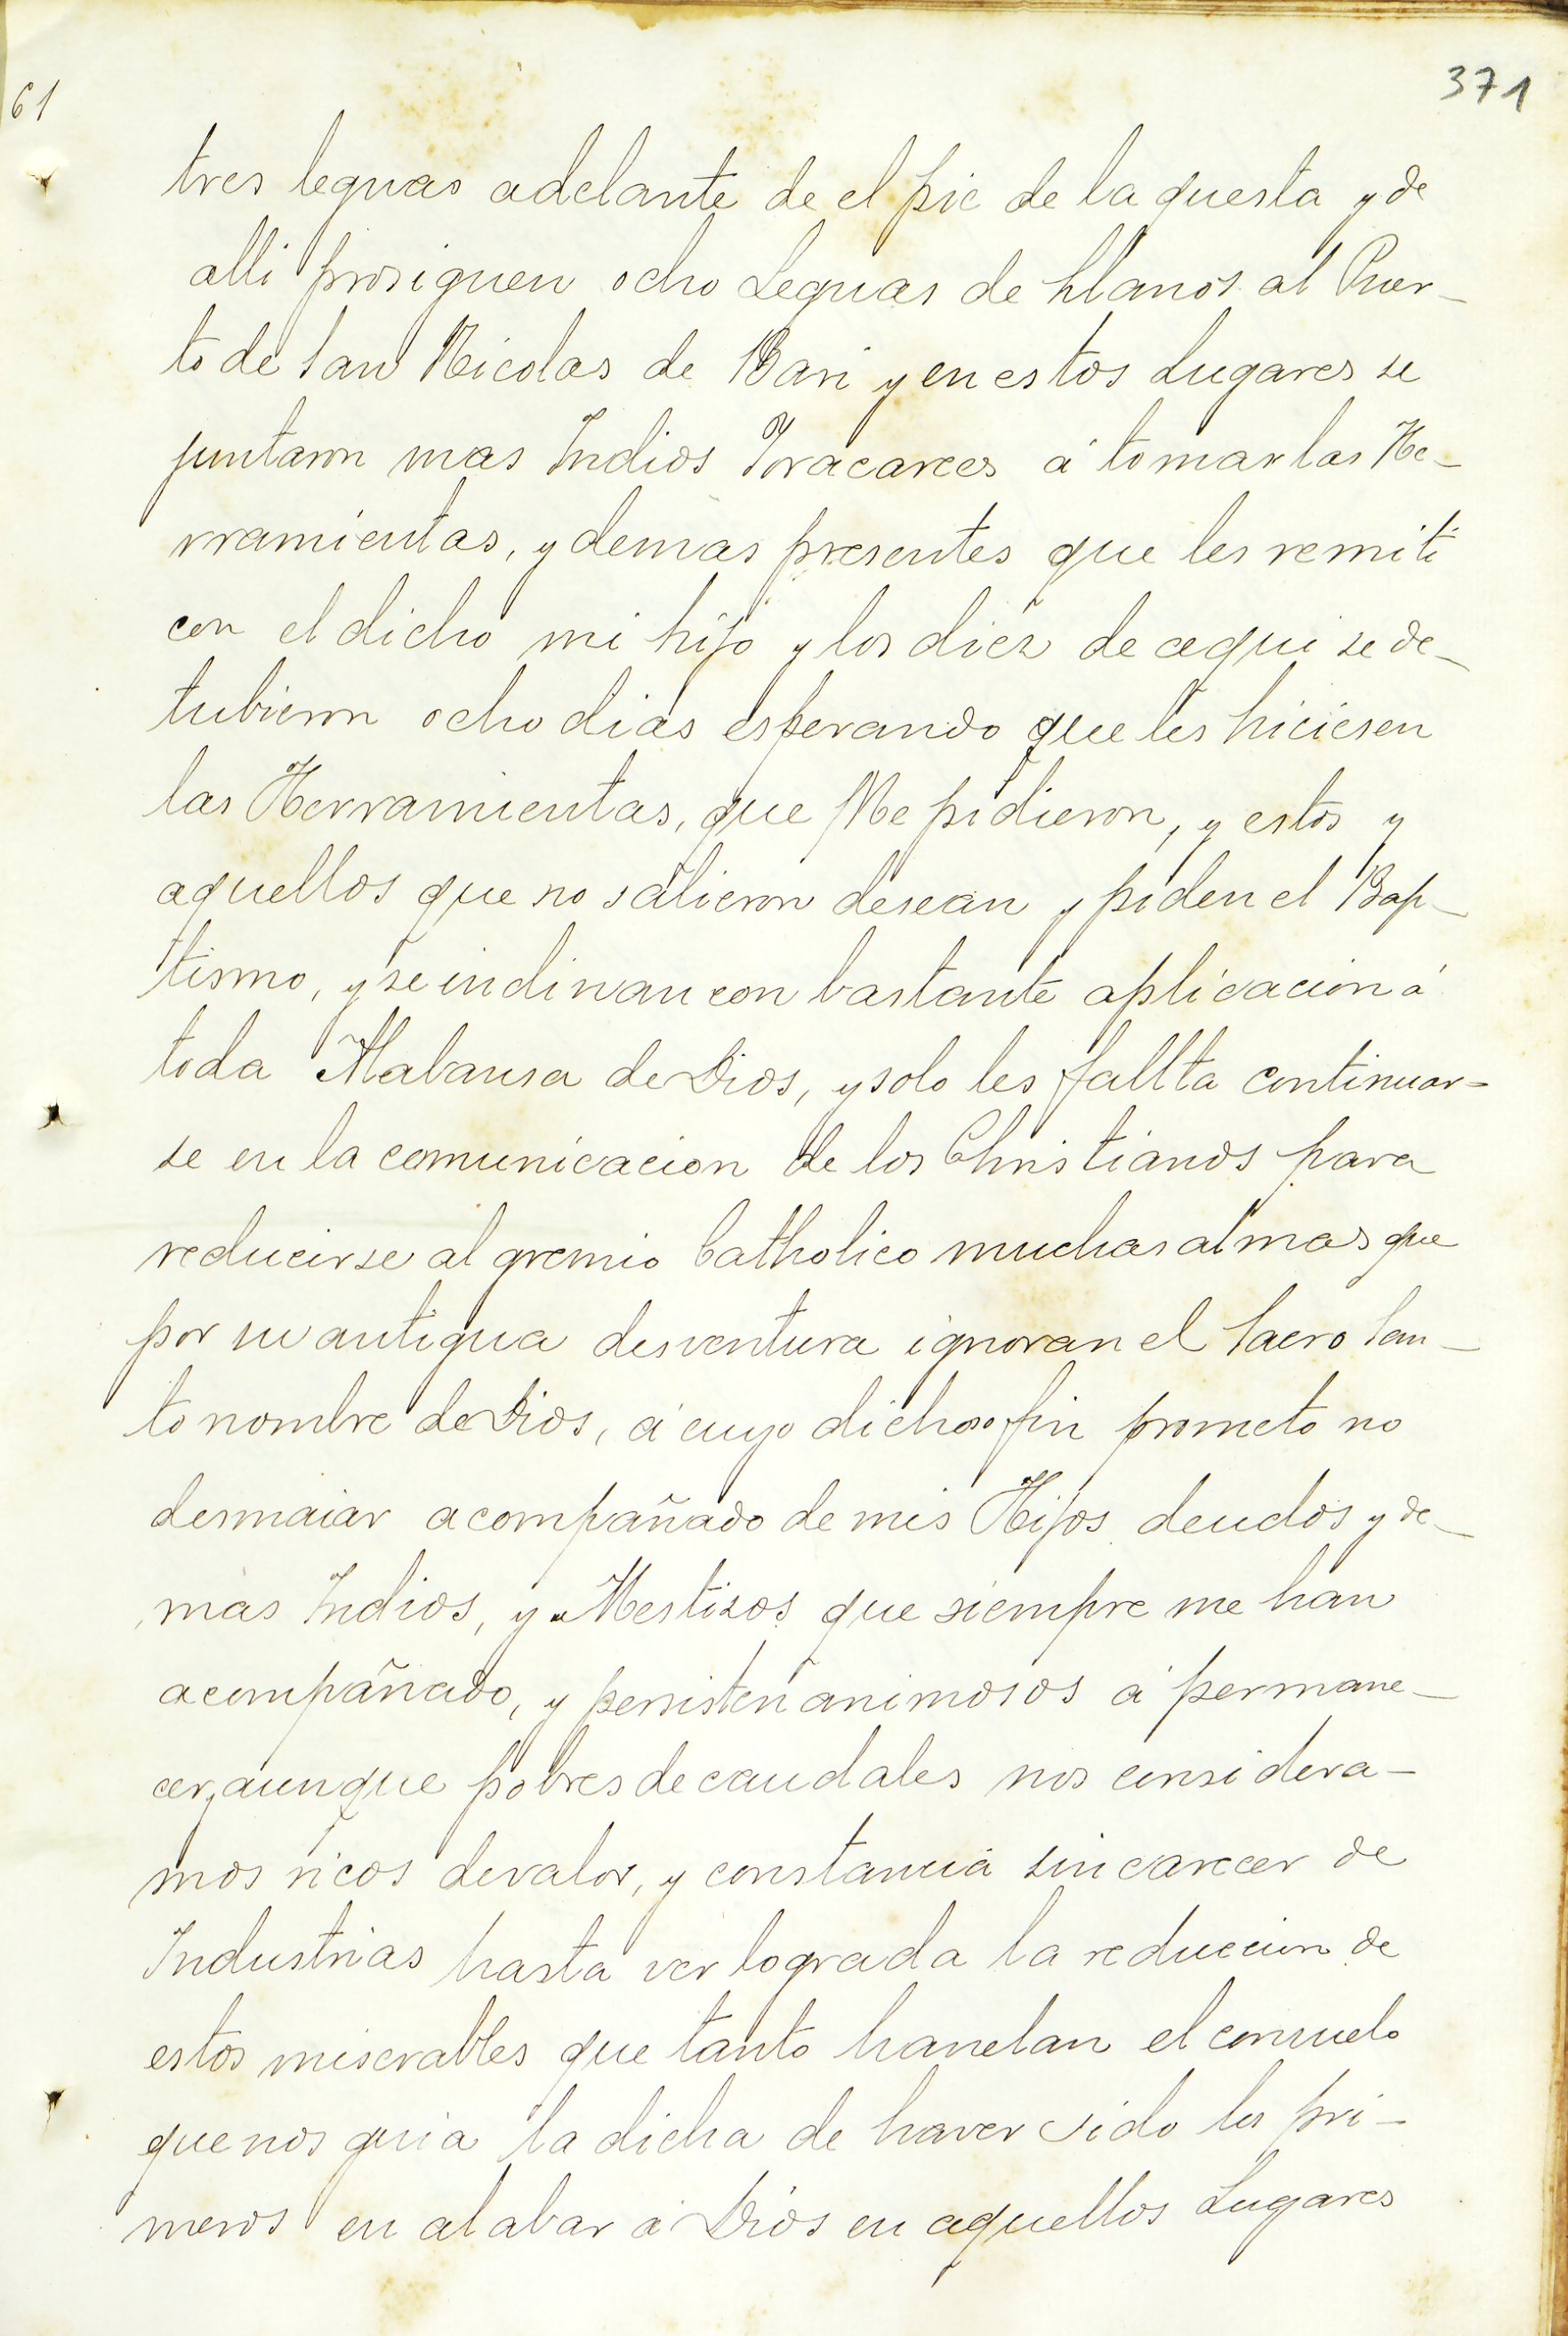 61
371
tres leguas adelante de el pie de la questa y de
alli prosiguen ocho Leguas de Llanos al Puer-
to de San Nicolas de Bari y en estos Lugares se
juntaron mas Indios Yoracarees á tomar las He-
rramientas, y demas presentes que les remiti
con el dicho mi hijo y los diez de aqui se de-
tubieron ocho dias esperando que les hiciesen
las Herramientas, que Me pidieron, y estos y
aquellos que no salieron desean y piden el Bap-
tismo, y se indinan con bastante aplicacion á
toda Alabansa de Dios, y solo les fallta continuar-
se en la comunicacion de los Christianos para
reducirse al gremio Catholico muchas almas que
por su antigua desventura ignoran el Sacro San-
to nombre de Dios, á cuyo dichoso fin prometo no
desmaiar acompañado de mis Hijos deudos y de-
mas Indios, y Mestisos que siempre me han
acompañado, y persisten animosos á permane-
cer, aunque pobres de caudales nos considera-
mos ricos de valor, y constancia sin carecer de
Industrias hasta ver lograda la reduccion de
estos miserables que tanto hanelan el consuelo
que nos guia la dicha de haver sido los pri-
meros en alabar á Dios en aquellos Lugares